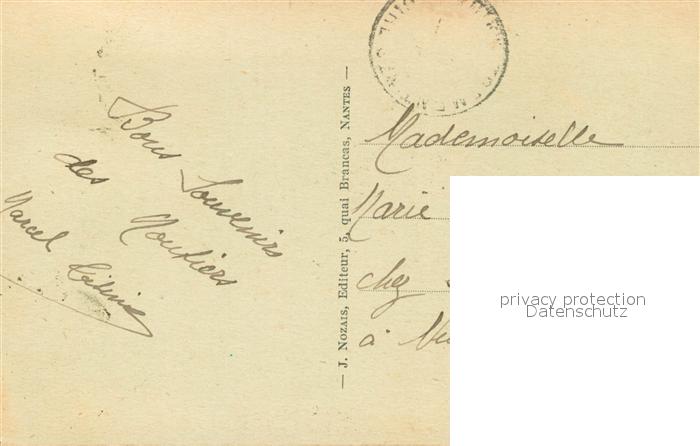 Bons Souvenirs
des Moutiers
Marcel
— J. Nozais, Editeur, 5, quai Brancas, Nantes —
Mademoiselle
Marie
chez
à
privacy protection
Datenschutz